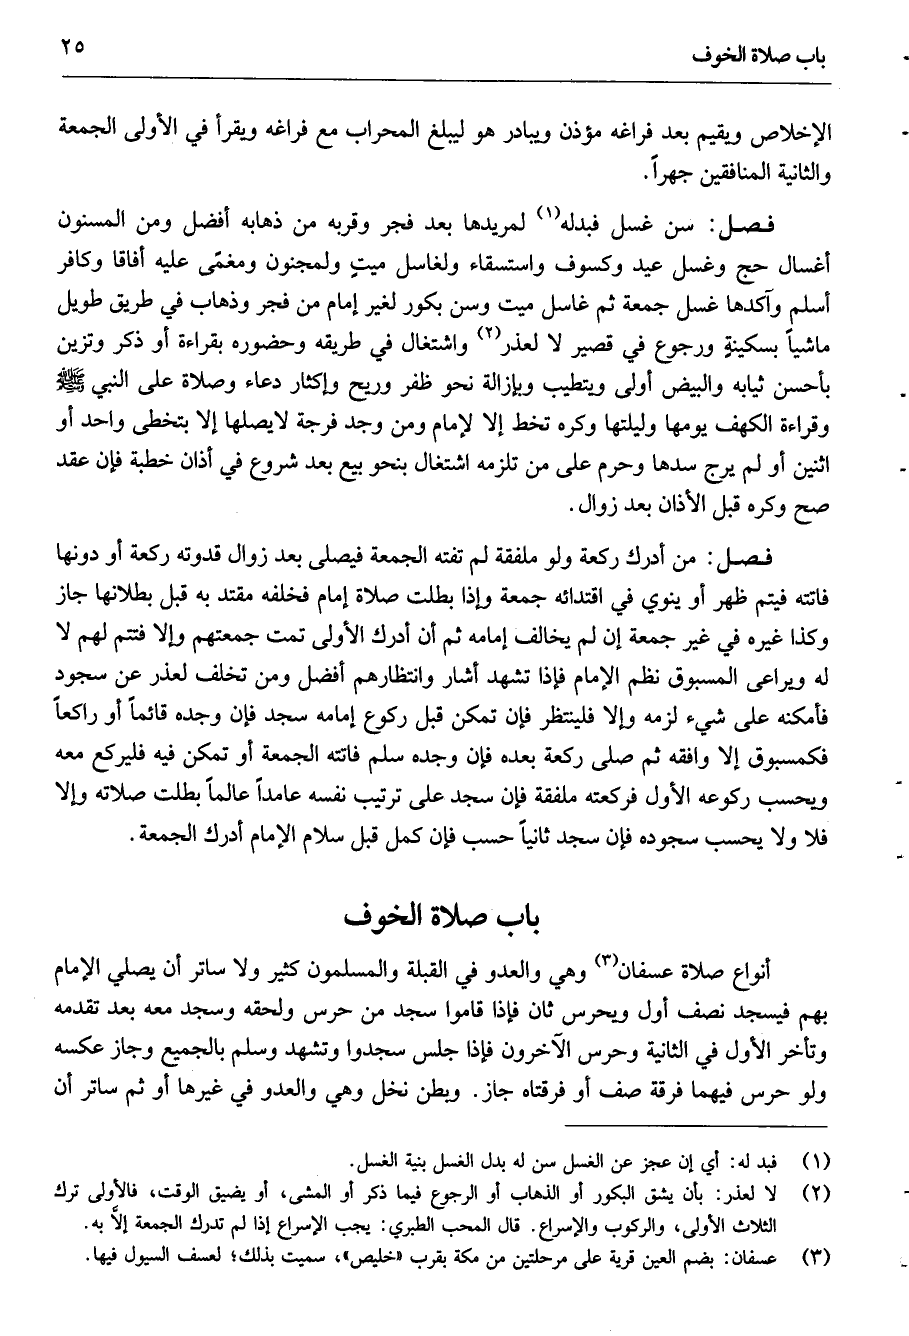 باب صلاة الخوف
٢٥
الإخلاص ويقيم بعد فراغه مؤذن ويبادر هو ليبلغ المحراب مع فراغه ويقرأ في الأولى الجمعة
والثانية المنافقين جهراً.
فصل: سن غسل فبدله(١) لمريدها بعد فجر وقربه من ذهابه أفضل ومن المسنون
أغسال حج وغسل عيد وكسوف واستسقاء ولغاسل ميتٍ ولمجنون ومغمّى عليه أفاقا وكافر
أسلم وآكدها غسل جمعة ثم غاسل ميت وسن بكور لغير إمام من فجر وذهاب في طريق طويل
ماشياً بسكينةٍ ورجوع في قصير لا لعذر(٢) واشتغال في طريقه وحضوره بقراءة أو ذكر وتزين
بأحسن ثيابه والبيض أولى ويتطيب وبإزالة نحو ظفر وريح وإكثار دعاء وصلاة على النبي ﷺ
وقراءة الكهف يومها وليلتها وكره تخط إلا لإمام ومن وجد فرجة لايصلها إلا بتخطى واحد أو
اثنين أو لم يرج سدها وحرم على من تلزمه اشتغال بنحو بيع بعد شروع في أذان خطبة فإن عقد
صح وكره قبل الأذان بعد زوال.
فصل: من أدرك ركعة ولو ملفقة لم تفته الجمعة فيصلى بعد زوال قدوته ركعة أو دونها
فاتته فيتم ظهر أو ينوي في اقتدائه جمعة وإذا بطلت صلاة إمام فخلفه مقتد به قبل بطلانها جاز
وكذا غيره في غير جمعة إن لم يخالف إمامه ثم أن أدرك الأولى تمت جمعتهم وإلا فتتم لهم لا
له ويراعى المسبوق نظم الإمام فإذا تشهد أشار وانتظارهم أفضل ومن تخلف لعذر عن سجود
فأمكنه على شيء لزمه وإلا فلينتظر فإن تمكن قبل ركوع إمامه سجد فإن وجده قائماً أو راكعاً
فكمسبوق إلا وافقه ثم صلى ركعة بعده فإن وجده سلم فاتته الجمعة أو تمكن فيه فليركع معه
ويحسب ركوعه الأول فركعته ملفقة فإن سجد على ترتيب نفسه عامداً عالماً بطلت صلاته وإلا
فلا ولا يحسب سجوده فإن سجد ثانياً حسب فإن كمل قبل سلام الإمام أدرك الجمعة.
باب صلاة الخوف
أنواع صلاة عسفان(٣) وهي والعدو في القبلة والمسلمون كثير ولا ساتر أن يصلي الإمام
بهم فيسجد نصف أول ويحرس ثان فإذا قاموا سجد من حرس ولحقه وسجد معه بعد تقدمه
وتأخر الأول في الثانية وحرس الآخرون فإذا جلس سجدوا وتشهد وسلم بالجميع وجاز عكسه
ولو حرس فيهما فرقة صف أو فرقتاه جاز. وبطن نخل وهي والعدو في غيرها أو ثم ساتر أن
(١) فبد له: أي إن عجز عن الغسل سن له بدل الغسل بنية الغسل.
(٢) لا لعذر: بأن يشق البكور أو الذهاب أو الرجوع فيما ذكر أو المشى، أو يضيق الوقت، فالأولى ترك
الثلاث الأولى، والركوب والإسراع. قال المحب الطبري: يجب الإسراع إذا لم تدرك الجمعة إلاَّ به.
(٣) عسفان: بضم العين قرية على مرحلتين من مكة بقرب «خليص»، سميت بذلك؛ لعسف السيول فيها.